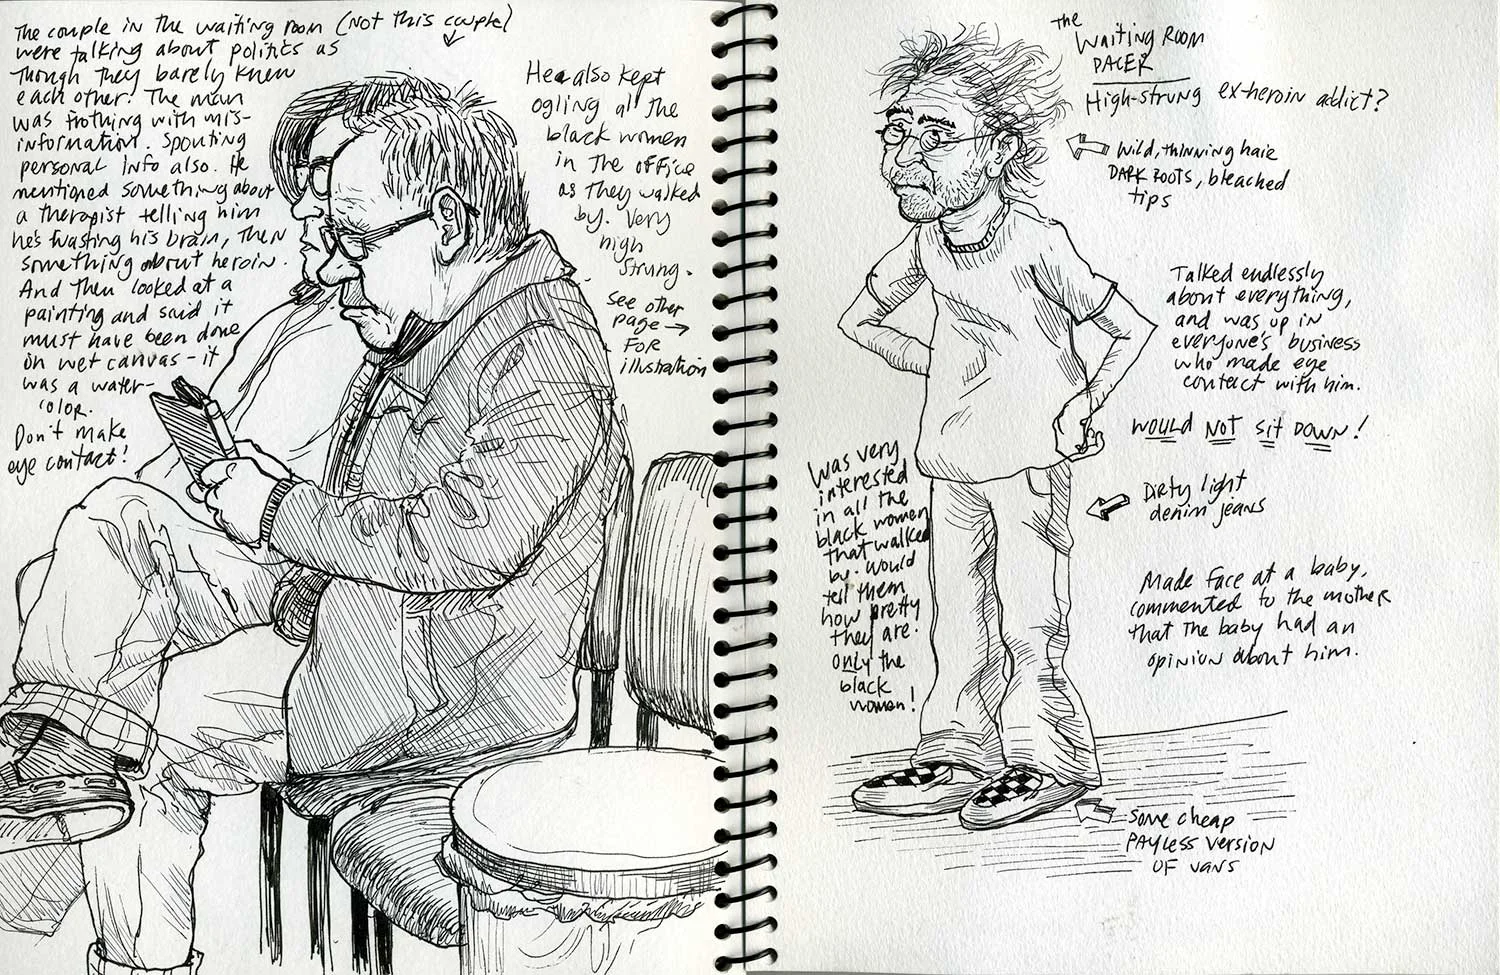 The couple in the waiting room (not this couple)
were talking about politics as
though they barely knew
each other. The man
was frothing with mis-
information. Spouting
personal info also. He
mentioned something about
a therapist telling him
he's wasting his brain, then
something about heroin.
And then looked at a
painting and said it
must have been done
on wet canvas - it
was a water-
color.
Don't make
eye contact!
He also kept
ogling all the
black women
in the office
as they walked
by. Very
high
strung.
See other
page →
for
illustration
The
Waiting Room
Pacer
High-strung ex-heroin addict?
Wild, thinning hair
Dark roots, bleached
tips
Talked endlessly
about everything,
and was up in
everyone's business
who made eye
contact with him.
Would not sit down!
Dirty light
denim jeans
Was very
interested
in all the
black women
that walked
by. Would
tell them
how pretty
they are.
only the
black
women!
Made face at a baby,
commented to the mother
that the baby had an
opinion about him.
Some cheap
Payless version
of vans